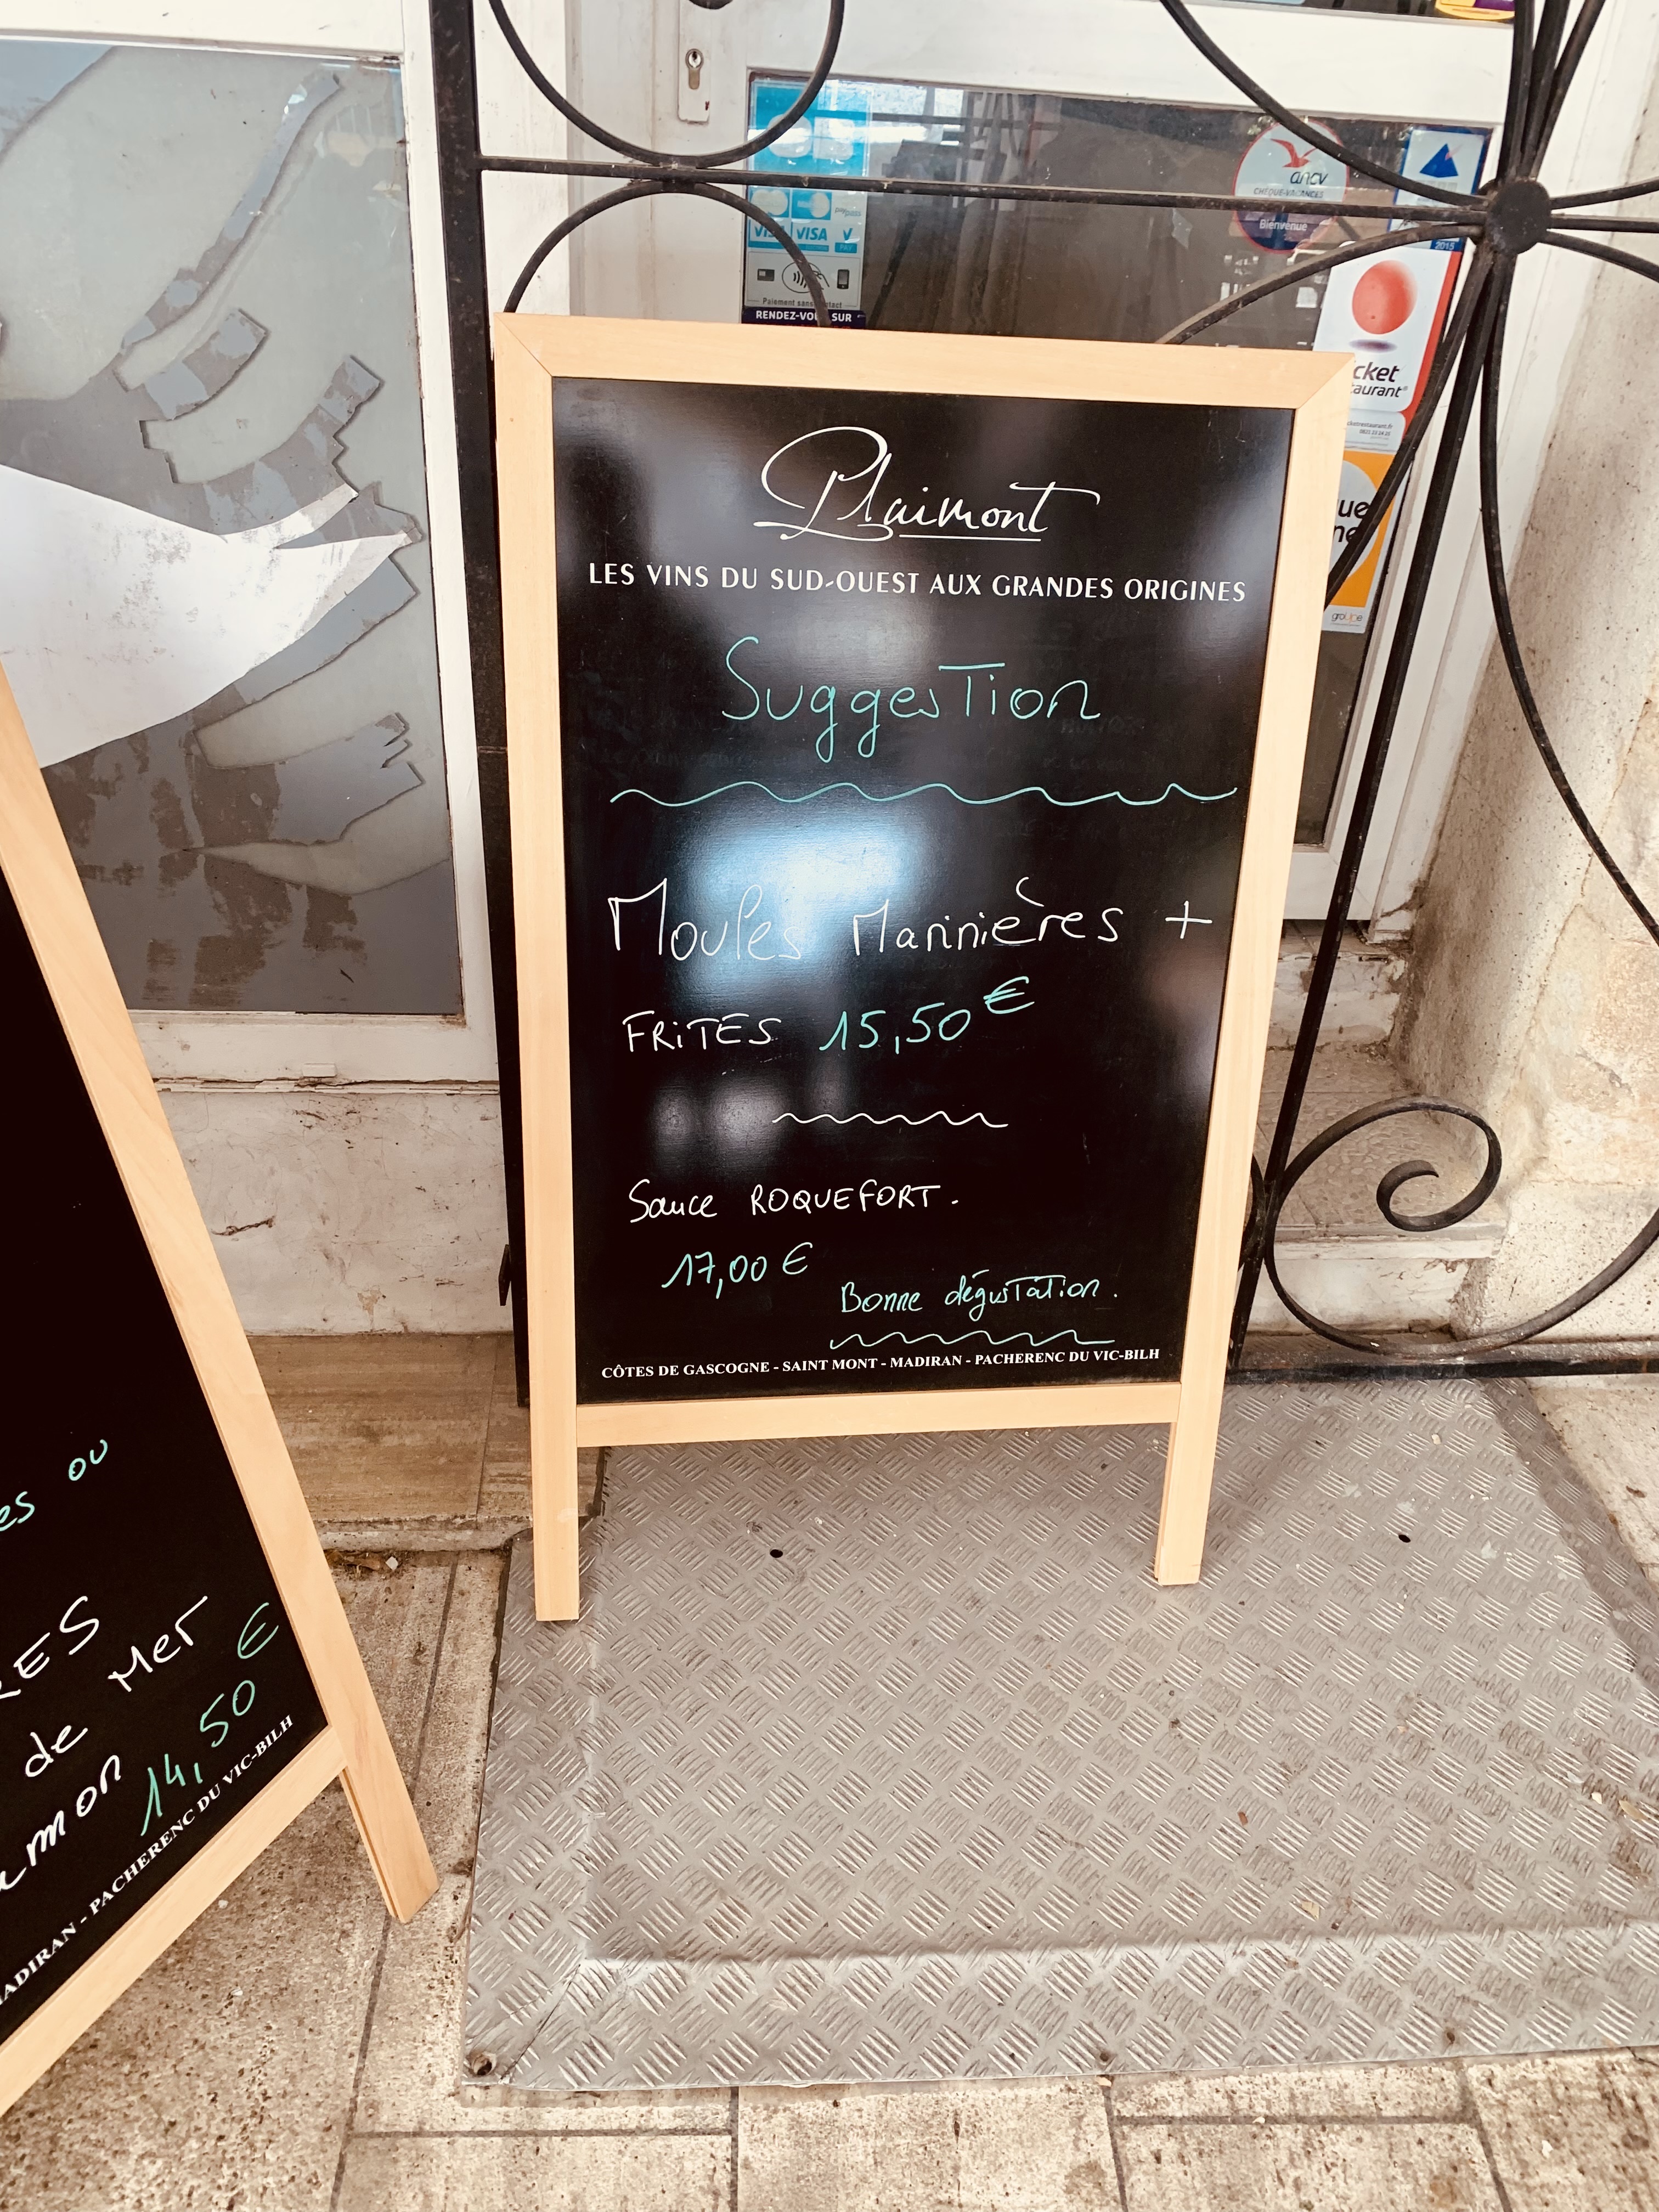 VISA VISA V
PAY
Paiement sans contact
RENDEZ-VOUS SUR
ancv
CHÈQUE-VACANCES
Bienvenue
2015
groupe
Plaimont
LES VINS DU SUD-OUEST AUX GRANDES ORIGINES
Suggestion
Moules Marinières +
FRiTES 15,50 €
Sauce ROQUEFORT.
17,00 €
Bonne dégustation.
CÔTES DE GASCOGNE - SAINT MONT - MADIRAN - PACHERENC DU VIC-BILH
ou
de Mer
14,50 €
MADIRAN - PACHERENC DU VIC-BILH